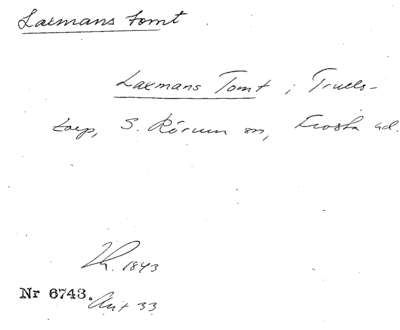 Laxmans tomt
Laxmans Tomt, i Truels-
torp, S. Rörum sn, Frosta hd.
1843
Nr 6743. Akt 33